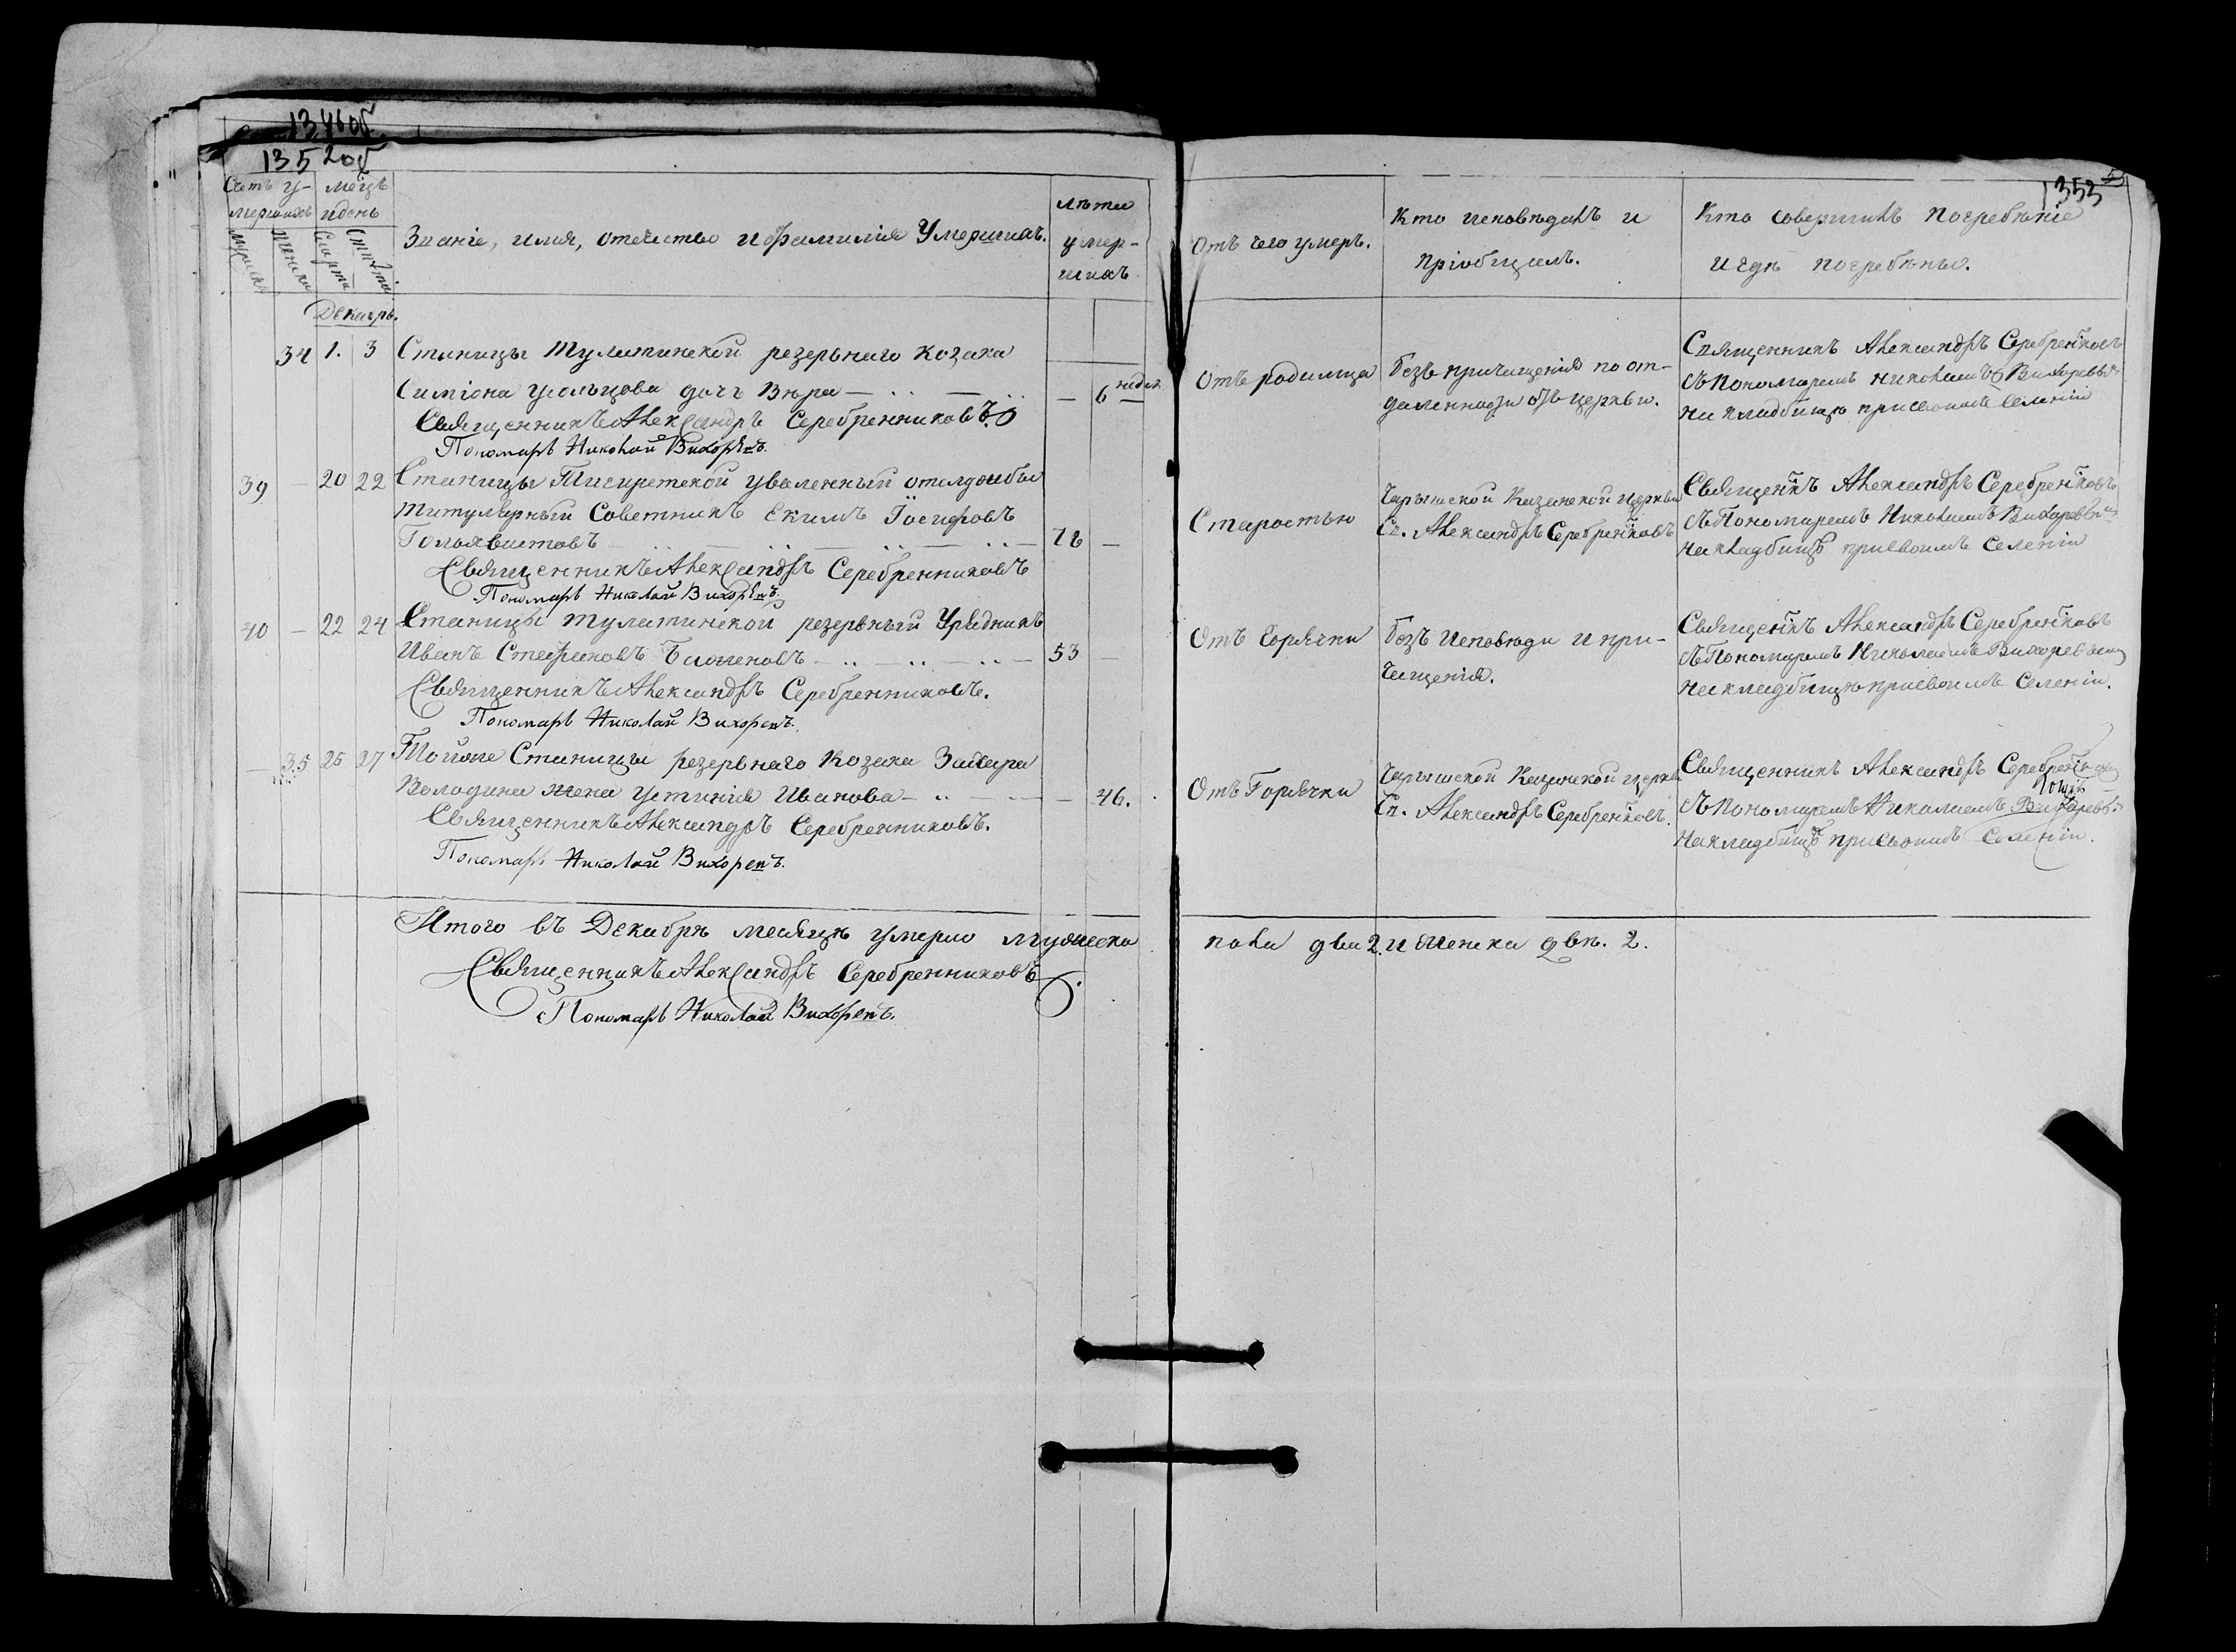 1346об
1352об
1353
Счетъ у-
мершихъ
мѣцъ
и день
мужска
женска
Смерти
Звание, имя, отечество и фамилия Умершихъ.
лѣта
умер-
шихъ
Отъ чего умеръ.
Кто исповѣдалъ и
пріобщилъ.
Кто совершилъ погребѣніе
и гдѣ погребѣны.
Декабрь.
34 1. 3 Станицы Тулатинской резервнаго козака
Симіона Усольцова дочь Вѣра — 6 недѣл
Священникъ Александръ Серебренниковъ.
Пономарь Николай Вихоревъ.
Отъ родимца
безъ причащенія по от-
даленности отъ церкви.
Священникъ Александръ Серебрениковъ
съ Пономаремъ Николаемъ Вихоревым
на кладбищѣ при своемъ селеніи
39 — 20 22 Станицы Тигиретской уваленный отслужбы
Титулярный Советникъ Екимъ Іосифовъ
— 78 —
Священникъ Александръ Серебренниковъ
Пономарь Николай Вихоревъ.
Старостью
Чарышской Казанской церкви
Св. Александръ Серебрениковъ
Священикъ Александръ Серебрениковъ
съ Пономаремъ Николаемъ Вихоревым
на кладбищѣ при своимъ селеніи
40 — 22 24 Станицы Тулатинской резервный Урядникъ
Иванъ Стефановъ — 53 —
Священникъ Александръ Серебренниковъ.
Пономарь Николай Вихоревъ.
Отъ Горячки
безъ Исповѣди и при-
чащенія.
Священикъ Александръ Серебрениковъ
съ Пономаремъ Николаемъ Вихоревым
на кладбищѣ при своимъ селеніи.
— 35 25 27 Тойже Станицы резервнаго Козака Захара
Володина жена Устинія Иванова — 46.
Священникъ Александръ Серебренниковъ.
Пономарь Николай Вихоревъ.
Отъ Горячки
Чарышской Казанской церкви
Св. Александръ Серебрениковъ.
Священникъ Александръ Серебрениковъ
съ Пономаремъ Николаемъ Вихоревым
на кладбищѣ при своимъ селеніи.
Итого въ Декабрѣ месяцѣ умерло мужеска пола два 2. и женска двѣ. 2.
Священникъ Александръ Серебренниковъ
Пономарь Николай Вихоревъ.